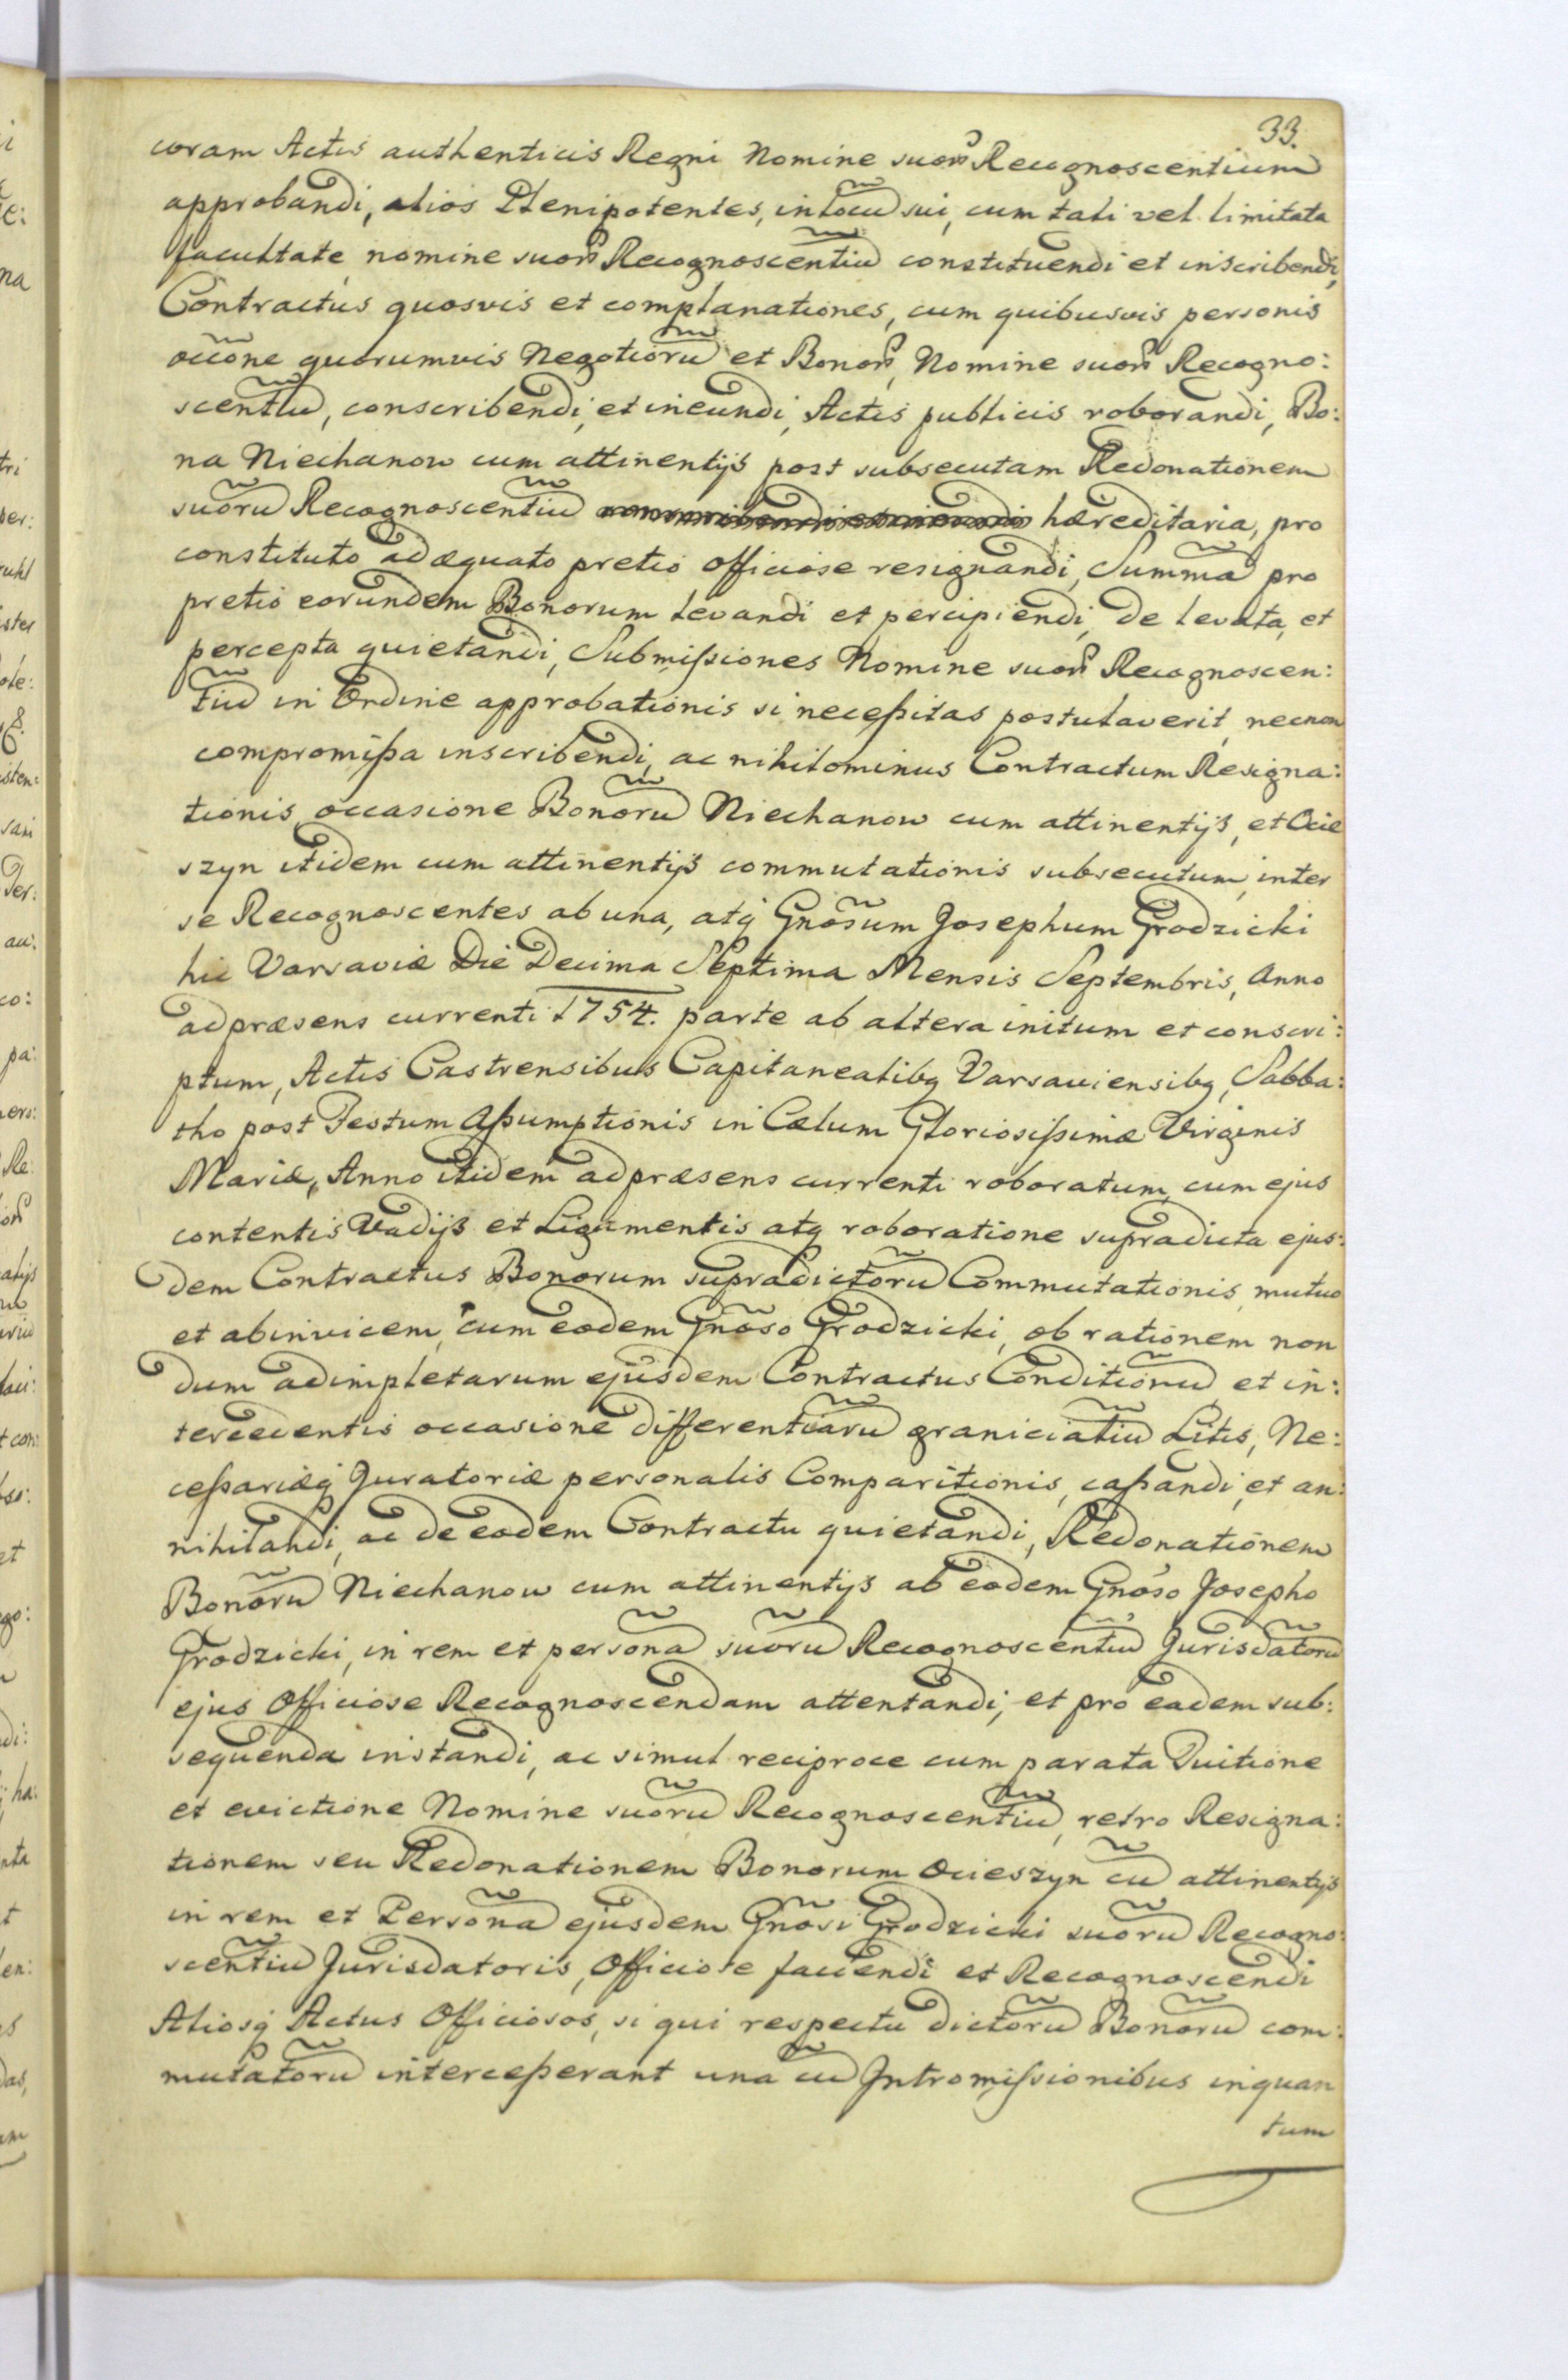 33.
coram Actis authenticis Regni Nomine suor̃ Recognoscentium
approbandi, alios Plenipotentes, in locũ sui, cum tali vel limitata
facultate nomine suor̃ Recognoscentiũ constituendi et inscribendi,
Contractus quosvis et complanationes, cum quibusvis personis
occõne quorumvis Negotiorũ et Bonor̃, Nomine suor̃ Recogno:
scentiũ, conscribendi, et ineundi, Actis publicis roborandi, Bo:
na Niechanow cum attinentijs post subsecutam Redonationem
suorũ Recognoscentiũ hæreditaria, pro
constituto adæquato pretio officiose resignandi, Summã pro
pretio eorundem Bonorum levandi et percipiendi, de levata, et
percepta quietandi, Submißiones Nomine suor̃ Recognoscen:
tiũ in Ordine approbationis si neceßitas postulaverit, necnon
compromißa inscribendi, ac nihilominus Contractum Resigna:
tionis, occasione Bonorũ Niechanow cum attinentijs, et Ocie
szyn itidem cum attinentijs commutationis subsecutum, inter
se Recognoscentes ab una, atq́ Gnõsum Josephum Grodzicki
hic Varsaviæ Die Decima Septima Mensis Septembris, Anno
ad præsens currenti 1754. parte ab altera initum et conscri:
ptum, Actis Castrensibus Capitanealibq Varsaviensibq, Sabba:
tho post Festum Aßumptionis in Cælum Gloriosißimæ Virginis
Mariæ, Anno itidem ad præsens currenti roboratum, cum ejus
contentis Vadijs et Ligamentis atq roboratione supradicta ejus:
dem Contractus Bonorum supradictorũ Commutationis, mutuo
et abinvicem, cum eodem Gnõso Grodzicki, ob rationem non
dum adimpletarum ejusdem Contractus Conditionũ et in:
tercedentis occasione differentiarũ graniciatiũ Litis, Ne:
ceßariæq́ Juratoriæ personalis Comparitionis, caßandi, et an:
nihilandi, ac de eodem Contractu quietandi, Redonationem
Bonorũ Niechanow cum attinentijs ab eodem Gnõso Josepho
Grodzicki, in rem et personã suorũ Recognoscentiũ Jurisdatorũ
ejus Officiose Recognoscendam attentandi, et pro eadem sub:
sequenda instandi, ac simul reciproce cum parata Tuitione
et evictione Nomine suorũ Recognoscentiũ, retro Resigna:
tionem seu Redonationem Bonorum Ocieszyn cũ attinentijs
in rem et Personã ejusdem Gnõsi Grodzicki suorũ Recogno:
scentiũ Jurisdatoris, Officiose faciendi et Recognoscendi
Aliosq́ Actus Officiosos, si qui respectu dictorũ Bonorũ com:
mutatorũ interceßerant una cũ Intromißionibus inquan
tum